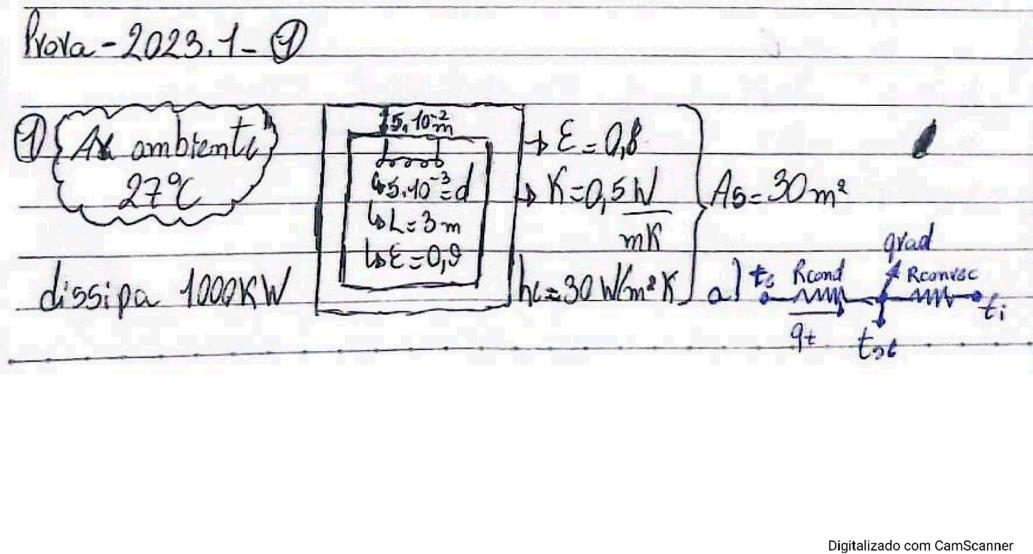 Prova - 2023.1 - ①
① Ar ambiente
27°C
dissipa 1000KW
5.10⁻² m
↳ 5.10⁻³ = d
↳ L = 3 m
↳ ε = 0,9
→ ε = 0,8
→ K = 0,5 W/mK
hc = 30 W/m²K
As = 30 m²
a) ts Rcond qrad Rconvec ti
qt
Digitalizado com CamScanner